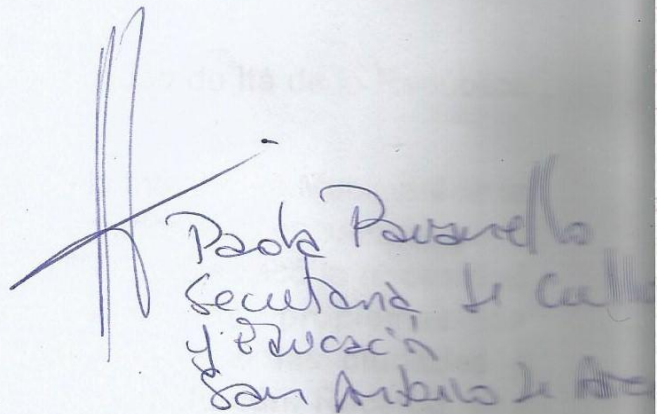 Paola Pavanello
Secretaria de
y Educación
San Antonio de